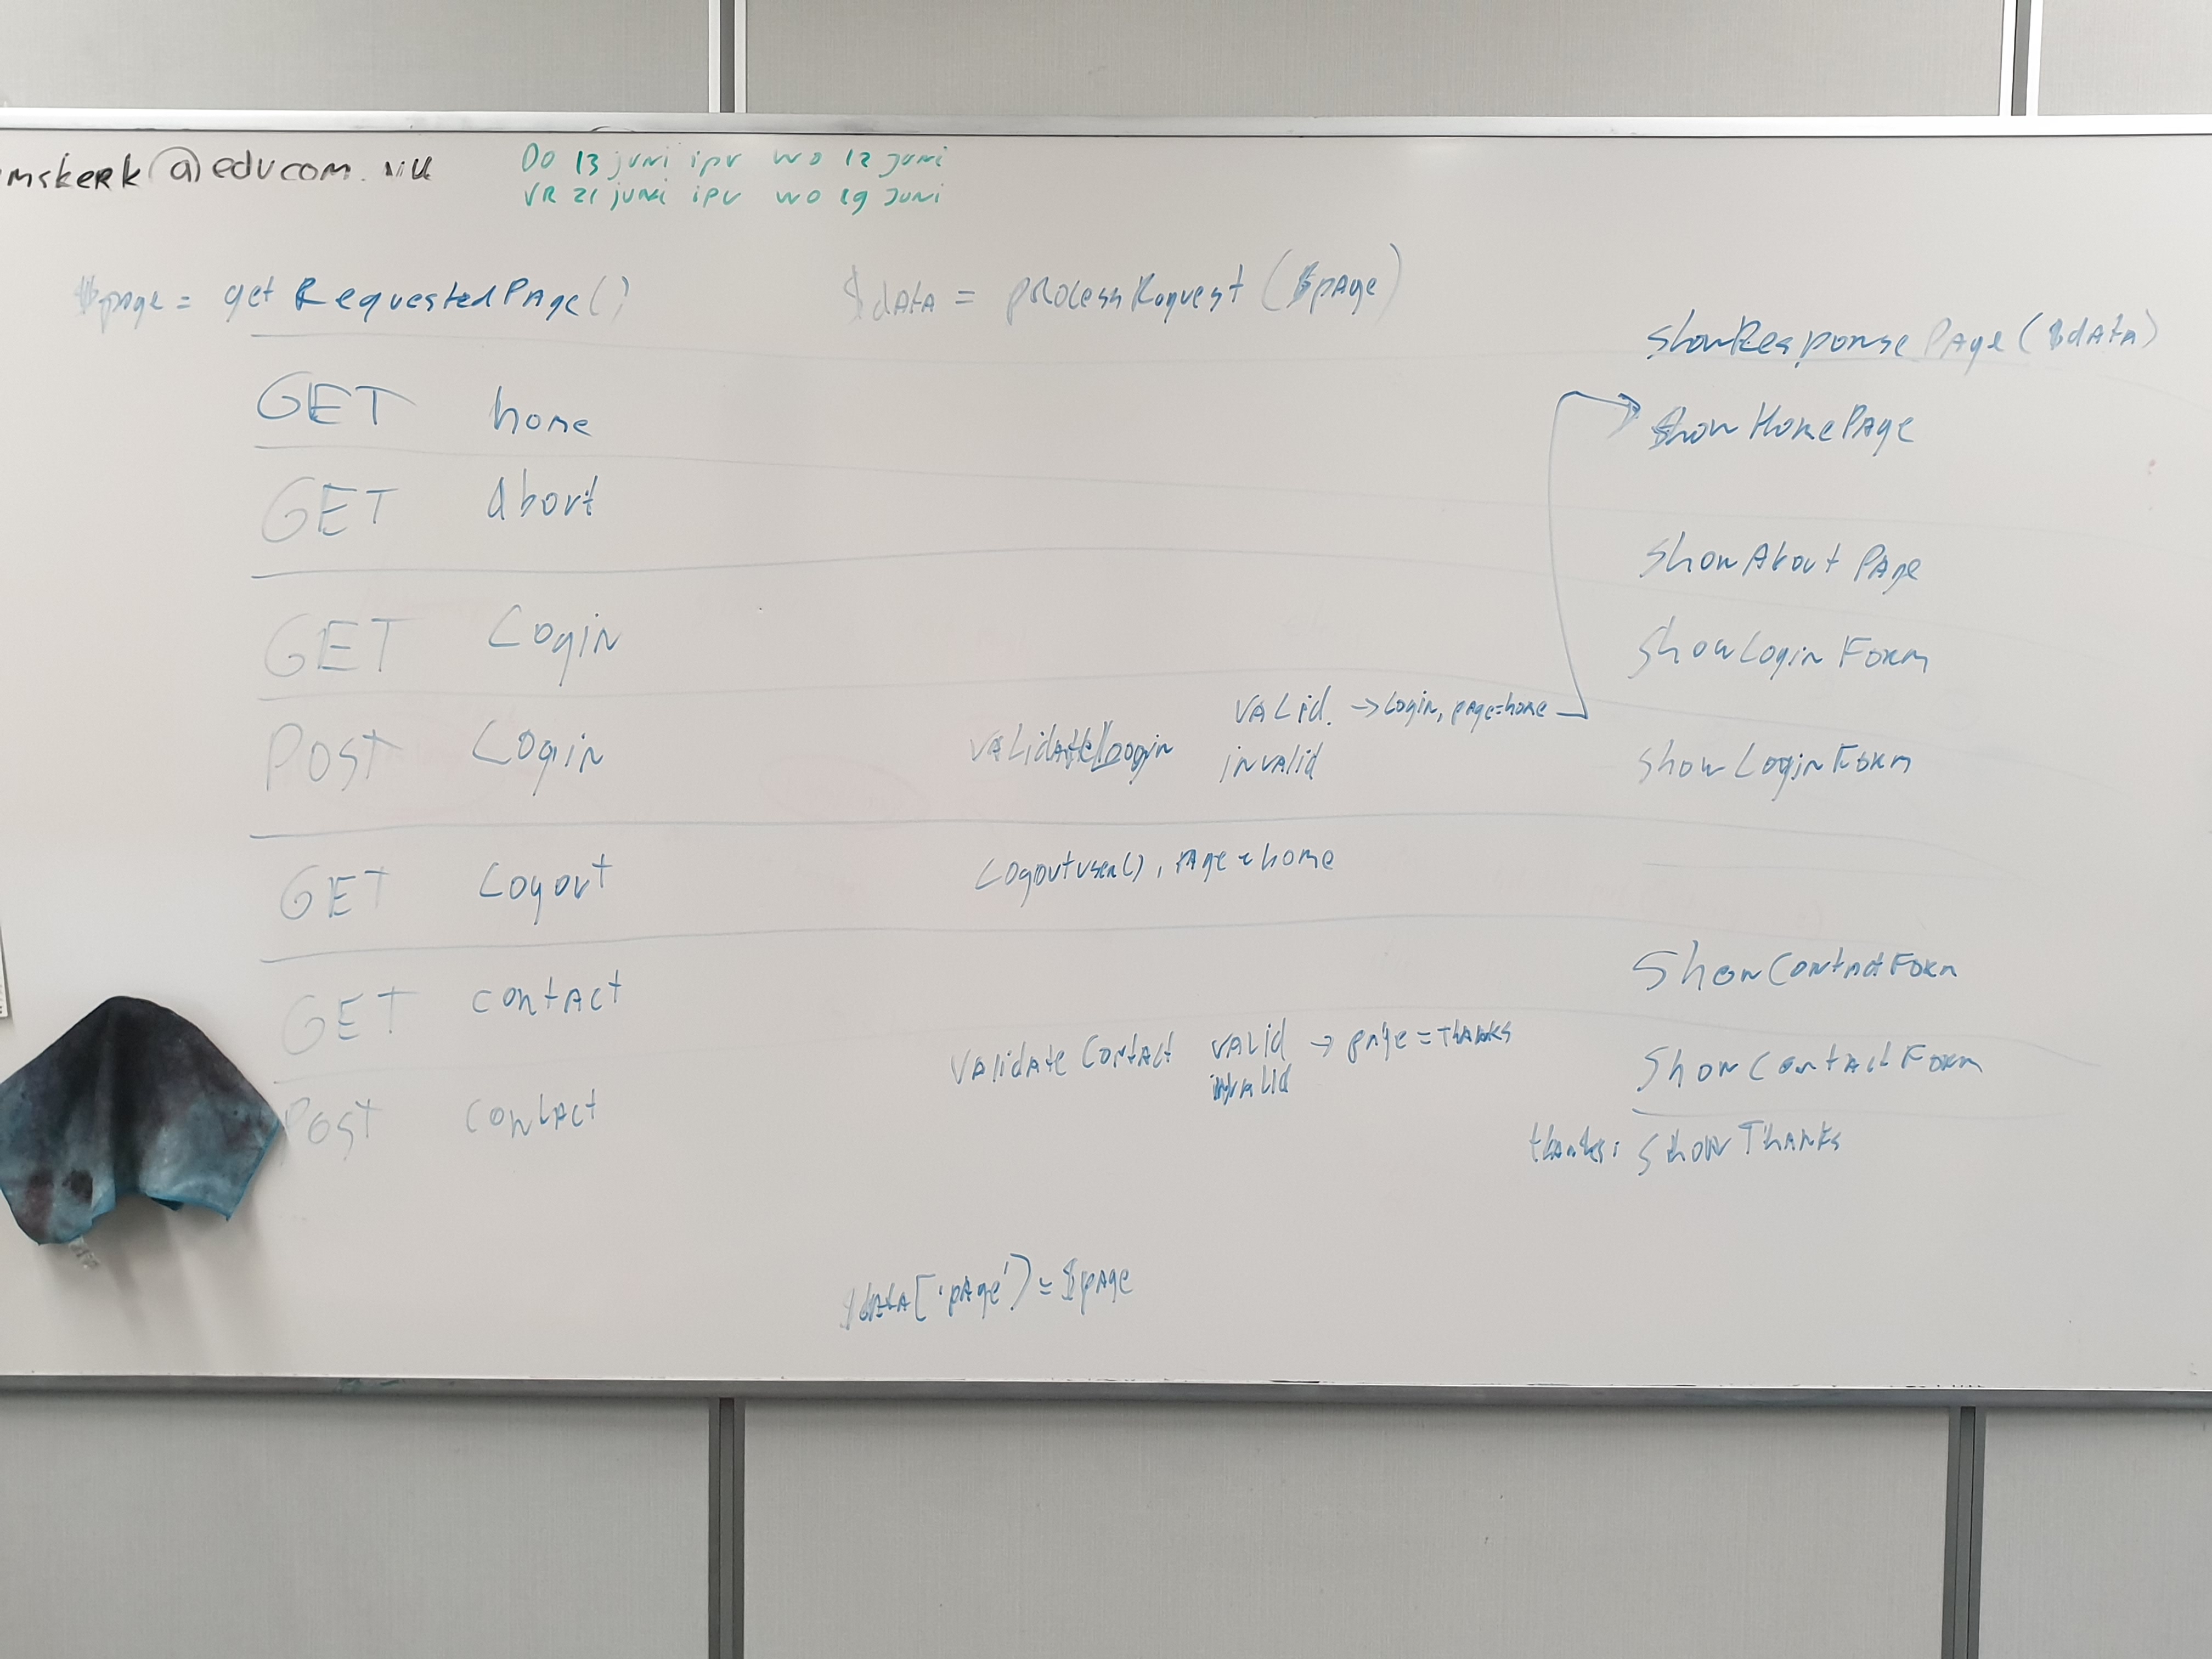 mskerk@educom.nu
DO 13 juni ipv wo 12 juni
VR 21 juni ipv wo 19 juni
$page = getRequestedPage()
$data = processRequest($page)
showResponsePage($data)
GET home
showHomePage
GET About
showAboutPage
GET Login
showLoginForm
POST Login
validateLogin
valid. → Login, page=home
invalid
showLoginForm
GET Logout
Logoutuser(), page = home
GET contact
ShowContactForm
POST contact
Validate Contact valid → page = Thanks
invalid
ShowContactForm
thanks: showThanks
$data['page') = $page